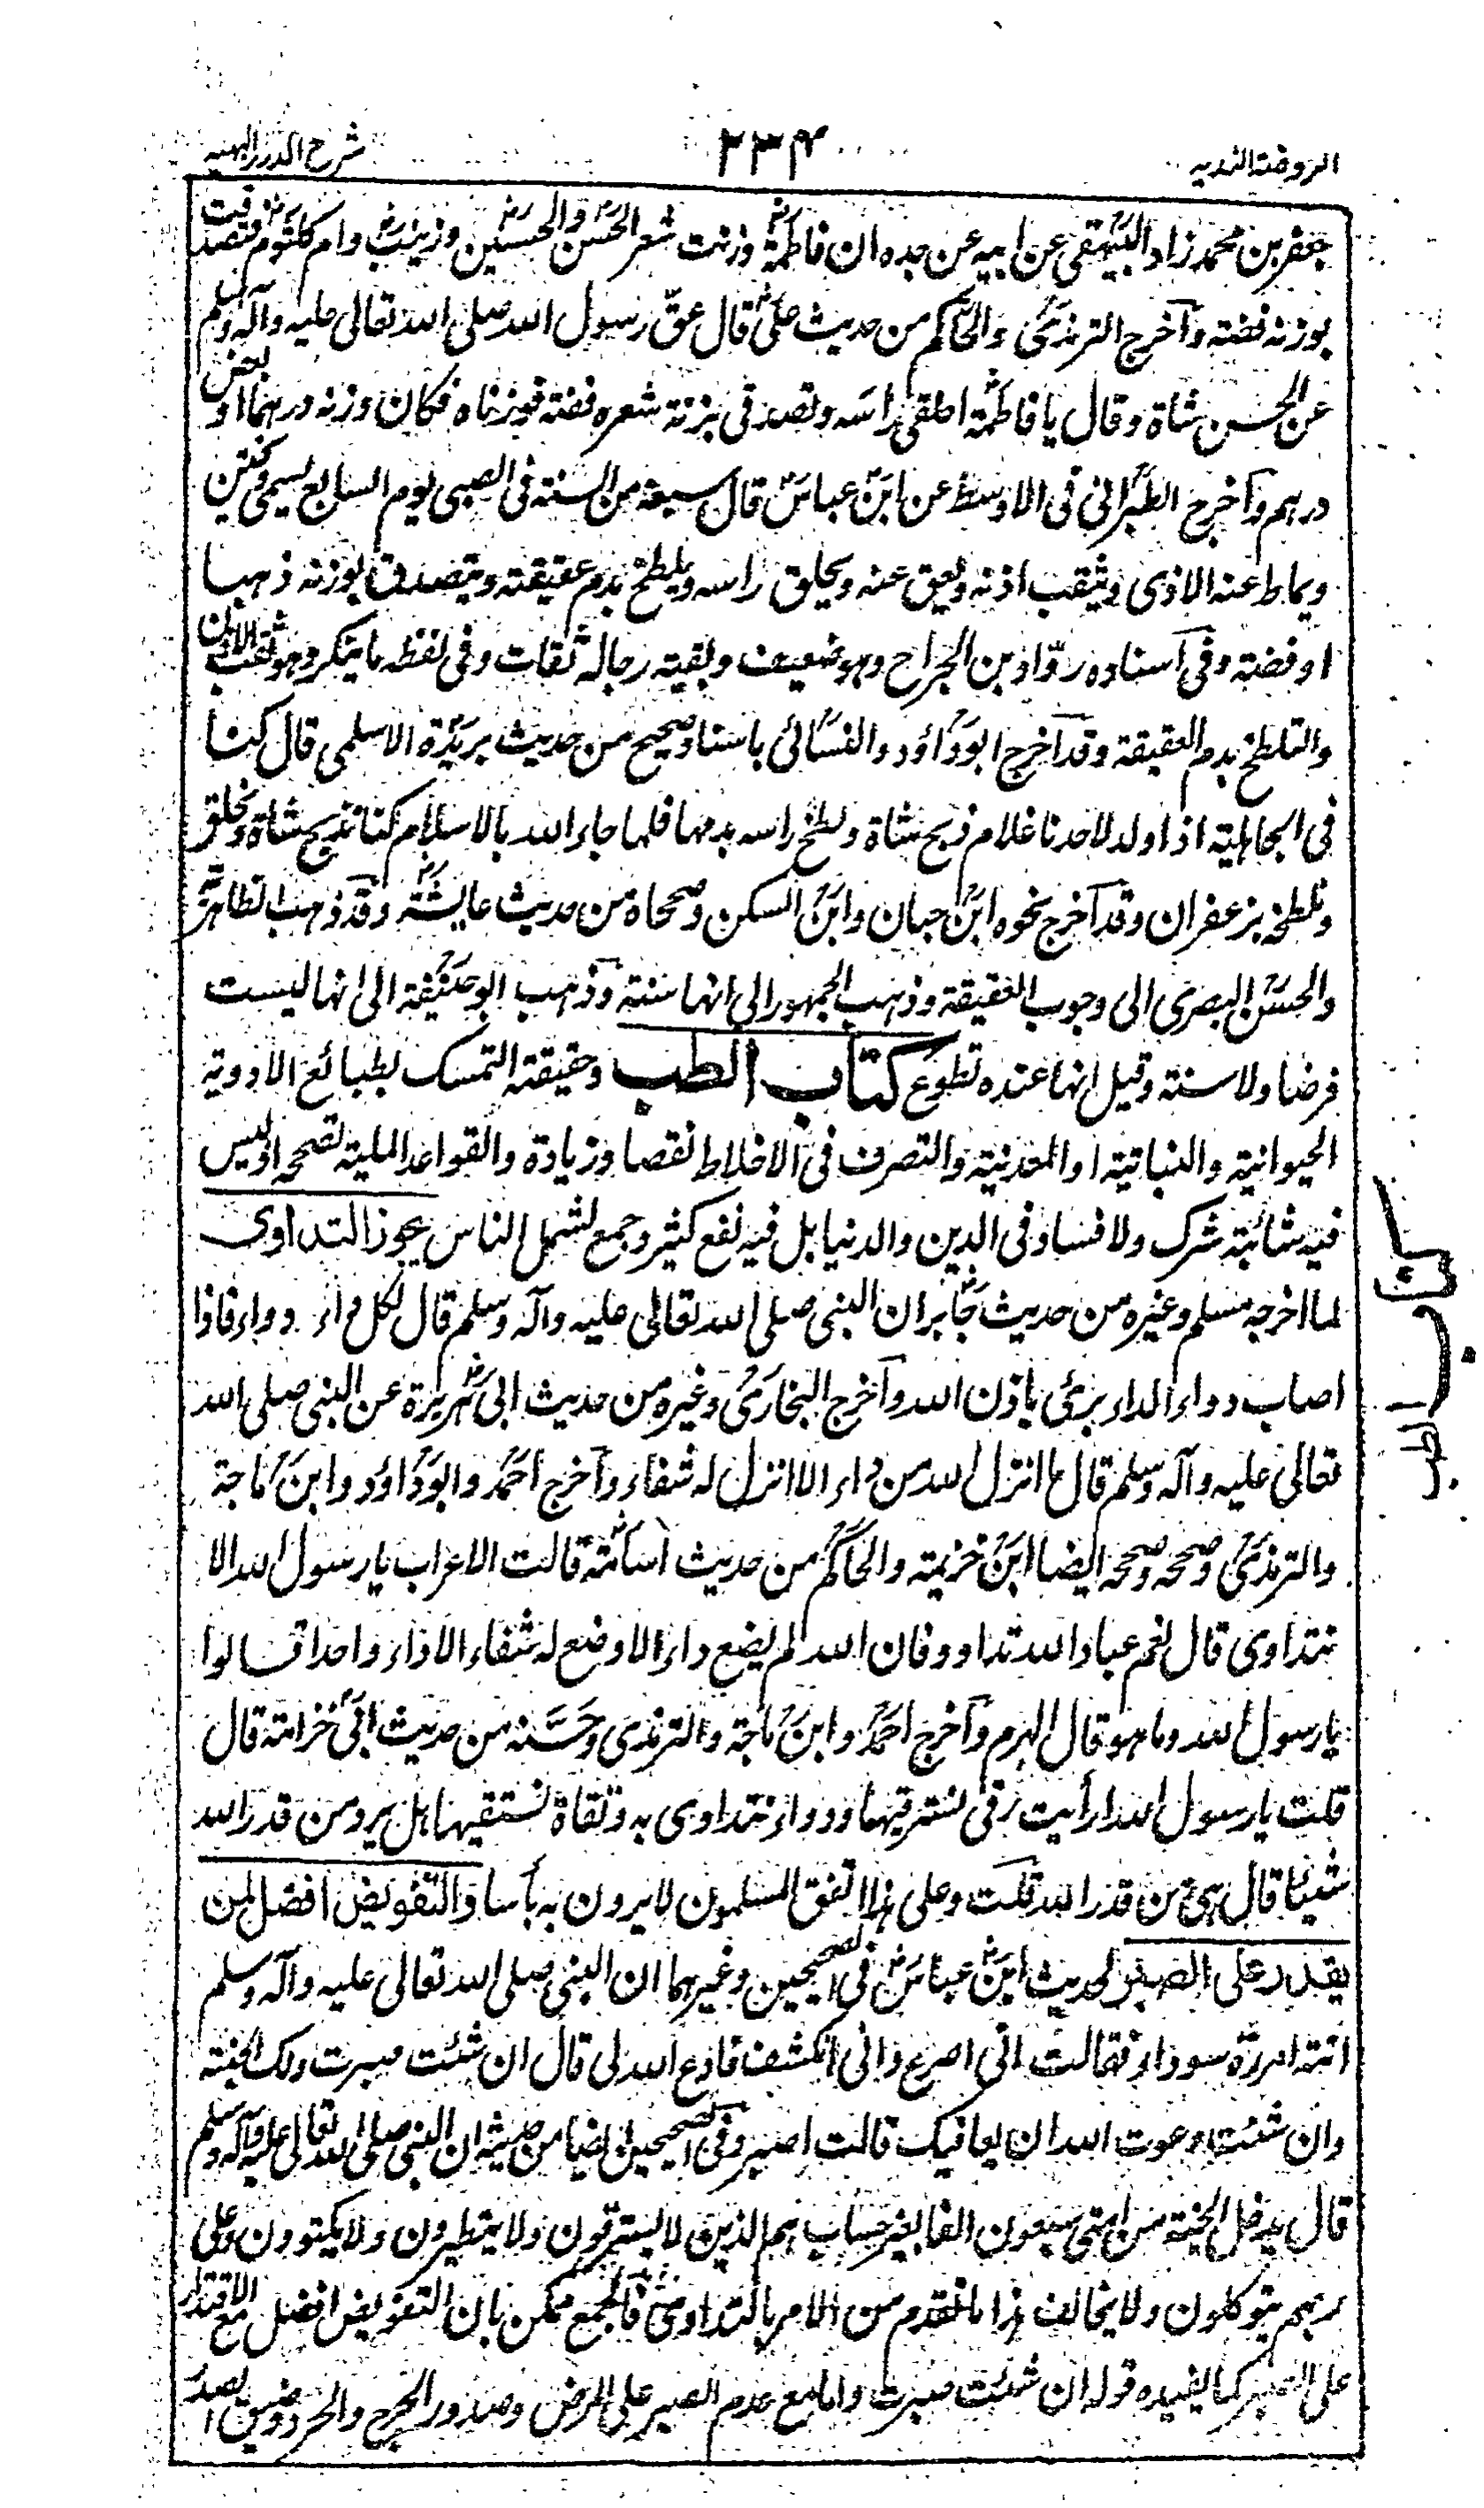 الروضة الندیه
۳۳۴
شرح الدرر البهیه
جعفر بن محمد زاد البیهقی عن ابیه عن جده ان فاطمةؓ وزنت شعر الحسنؓ والحسینؓ وزینبؓ وام کلثومؓ فتصدقت
بوزنه فضة وآخرج الترمذیؒ والحاکم من حدیث علیؓ قال عقّ رسول الله صلی الله تعالی علیه وآله وسلم
عن الحسن شاة وقال یا فاطمةؓ احلقی راسه وتصدقی بزنة شعره فضة فوزناه فکان وزنه درهما او بعض
درهم وآخرج الطبرانی فی الاوسط عن ابن عباسؓ قال سبعة من السنة فی الصبی یوم السابع یسمی ویختن
ویماط عنه الاذی ویثقب اذنه ویعق عنه ویحلق راسه ویلطخ بدم عقیقته ویتصدق بوزنه ذهبا
او فضة وفی آسناده روّاد بن الجراح وهو ضعیف وبقیة رجاله ثقات وفی لفظه ما ینکر وهو ثقب الاذن
والتلطخ بدم العقیقة وقد آخرج ابوداؤد والنسائی باسناد صحیح من حدیث بریدة الاسلمی قال کنا
فی الجاهلیة اذا ولد لاحدنا غلام ذبح شاة ولطخ راسه بدمها فلما جاء الله بالاسلام کنا نذبح شاة ونحلق
ونلطخه بزعفران وقد آخرج نحوه ابن حبان وابن السکن وصححاه من حدیث عایشةؓ وقد ذهب الظاهریة
والحسن البصری الی وجوب العقیقة وذهب الجمهور الی انها سنة وذهب ابو حنیفة الی انها لیست
فرضا ولا سنة وقیل انها عنده تطوع کتاب الطب وحقیقته التمسک بطبائع الادویة
الحیوانیة والنباتیة او المعدنیة والتصرف فی الاخلاط نقصا وزیادة والقواعد الملیة تصححه اذ لیس
فیه شائبة شرک ولا فساد فی الدین والدنیا بل فیه نفع کثیر وجمع لشمل الناس یجوز التداوی
لما اخرجه مسلم وغیره من حدیث جابر ان النبی صلی الله تعالی علیه وآله وسلم قال لکل داء دواء فاذا
اصاب دواء الداء برئ باذن الله وآخرج البخاریؒ وغیره من حدیث ابی هریرةؓ عن النبی صلی الله
تعالی علیه وآله وسلم قال ما انزل الله من داء الا انزل له شفاء وآخرج احمد وابوداؤد وابن ماجة
والترمذیؒ وصححه وصححه ایضا ابن خزیمة والحاکم من حدیث اسامةؓ قالت الاعراب یا رسول الله الا
نتداوی قال نعم عباد الله تداووا فان الله لم یضع داء الا وضع له شفاء الا داء واحدا قالوا
یا رسول الله وما هو قال الهرم وآخرج احمد وابن ماجة والترمذی وحسنه من حدیث ابی خزامة قال
قلت یا رسول الله ارأیت رقی نسترقیها ودواء نتداوی به وتقاة نتقیها هل یرد من قدر الله
شیئا قال هی من قدر الله قلت وعلی هذا اتفق المسلمون لا یرون به بأسا والتفویض افضل لمن
یقدر علی الصبر لحدیث ابن عباسؓ فی الصحیحین وغیرهما ان النبی صلی الله تعالی علیه وآله وسلم
اتته امرءة سوداء فقالت انی اصرع وانی اتکشف فادع الله لی قال ان شئت صبرت ولک الجنة
وان شئت دعوت الله ان یعافیک قالت اصبر وفی الصحیحین ایضا من حدیثه ان النبی صلی الله تعالی علیه وآله وسلم
قال یدخل الجنة من امتی سبعون الفا بغیر حساب هم الذین لا یسترقون ولا یتطیرون ولا یکتوون وعلی
ربهم یتوکلون ولا یخالف هذا ما تقدم من الامر بالتداوی فالجمع ممکن بان التفویض افضل مع الاقتدار
علی الصبر کما یفیده قوله ان شئت صبرت واما مع عدم الصبر علی المرض وصدور الحرج والحرد وضیق الصدر